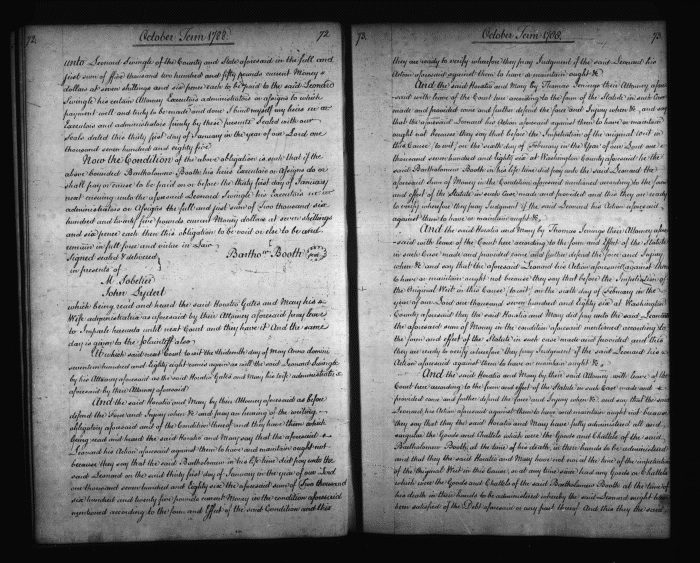 72.
October Term 1788.
72.
unto Leonard Swingle of the County and State aforesaid in the full and
just sum of five thousand two hundred and fifty pounds current Money
dollars at seven shillings and six pence each to be paid to the said Leonard
Swingle his certain Attorney Executors administrators or assigns to which
payment well and truly to be made and done I bind myself my heirs
Executors and administrators firmly by these presents Sealed with our
Seals dated this thirty first day of January in the year of our Lord one
thousand seven hundred and eighty five
Now the Condition of the above obligation is such that if the
above bounded Bartholomew Booth his heirs Executors or Assigns do or
shall pay or cause to be paid on or before the thirty first day of January
next ensuing unto the aforesaid Leonard Swingle his Executors
administrators or Assigns the full and just sum of Two thousand six
hundred and twenty five pounds current Money dollars at seven shillings
and six pence each then this obligation to be void or else to be and
remain in full force and virtue in Law
Signed sealed & delivered
in presents of
Barthow Booth
M. Tobelier
John Sydert
which being read and heard the said Horatio Gates and Mary his
Wife administratrix as aforesaid by their Attorney aforesaid pray leave
to Imparle hereunto until next Court and they have it And the same
day is given to the plaintiff also
At which said next Court to wit the thirteenth day of May Anno domini
seventeen hundred and Eighty eight comes again as well the said Leonard Swingle
by his Attorney aforesaid as the said Horatio Gates and Mary his wife administratrix
aforesaid by their Attorney aforesaid
And the said Horatio and Mary by their Attorney aforesaid as before
defend the Force and Injury when &c and pray an hearing of the writing
obligatory aforesaid and of the Condition thereof and they have them which
being read and heard the said Horatio and Mary say that the aforesaid
Leonard his Action aforesaid against them to have and maintain ought not
because they say that the said Bartholomew in his life time did pay unto the
said Leonard on the said thirty first day of January in the year of our Lord
one thousand seven hundred and Eighty six the aforesaid sum of Two thousand
six hundred and twenty five pounds current Money in the condition aforesaid
mentioned according to the form and Effect of the said Condition and this
73.
October Term 1788.
73.
they are ready to verify wherefore they pray Judgment if the said Leonard his
Action aforesaid against them to have or maintain ought &c
And the said Horatio and Mary by Thomas Jenings their Attorney afore
said with leave of the Court here according to the form of the Statute in such case
made and provided come and further defend the force and Injury when &c, and say
that the aforesaid Leonard his Action aforesaid against them to have or maintain
ought not because they say that before the Impetration of the original Writ in
this Cause, to wit, on the sixth day of February in the Year of our Lord one
thousand seven hundred and eighty six at Washington County aforesaid he the
said Bartholomew Booth in his life time did pay unto the said Leonard the
aforesaid Sum of Money in the Condition aforesaid mentioned according to the form
and effect of the Statute in such case made and provided and this they are ready
to verify wherefore they pray Judgment if the said Leonard his Action aforesaid
against them to have or maintain ought &c,
And the said Horatio and Mary by Thomas Jenings their Attorney afore
said with leave of the Court here according to the form and Effect of the Statute
in such case made and provided come and further defend the force and Injury
when &c and say that the aforesaid Leonard his Action aforesaid against them
to have or maintain ought not because they say that before the Impetration of
the Original Writ in this Cause, to wit, on the sixth day of February in the
year of our Lord one thousand seven hundred and eighty six at Washington
County aforesaid they the said Horatio and Mary did pay unto the said Leonard
the aforesaid sum of Money in the condition aforesaid mentioned according to
the form and effect of the Statute in such case made and provided and this
they are ready to verify wherefore they pray Judgment if the said Leonard his
Action aforesaid against them to have or maintain ought &c,
And the said Horatio and Mary by their said Attorney with leave of the
Court here according to the form and effect of the Statute in such case made and
provided come and further defend the force and Injury when &c and say that the said
Leonard his Action aforesaid against them to have and maintain ought not because
they say that they the said Horatio and Mary have fully administered all and
singular the Goods and Chattels which were the Goods and Chattels of the said
Bartholomew Booth at the time of his death in their hands to be administered
and that they the said Horatio and Mary have not nor at the time of the impetration
of the Original Writ in this Cause, or at any time since had any Goods or Chattels
which were the Goods and Chattels of the said Bartholomew Booth at the time of
his death in their hands to be administered whereby the said Leonard might have
been satisfied of the Debt aforesaid or any part thereof And this they the said